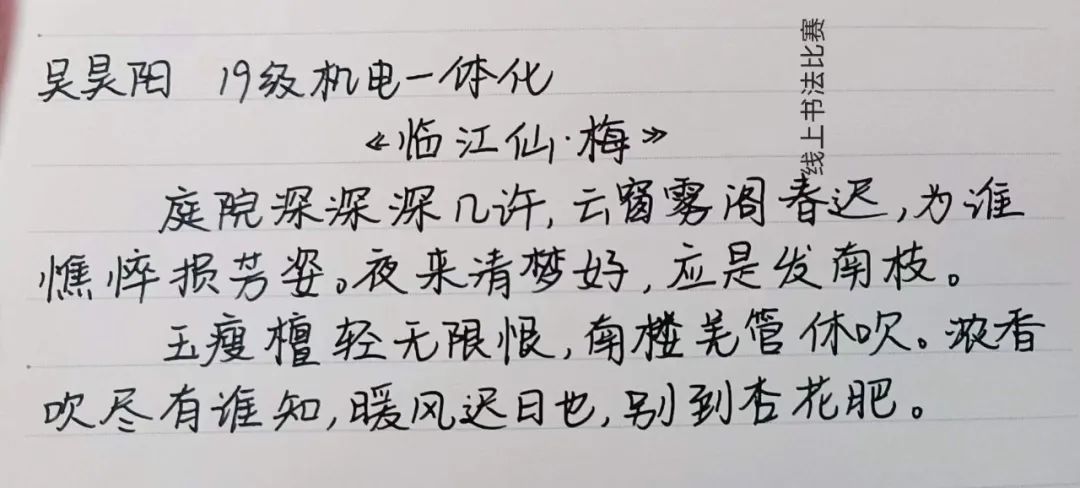 吴昊阳 19级机电一体化
《临江仙·梅》
庭院深深深几许,云窗雾阁春迟,为谁
憔悴损芳姿。夜来清梦好,应是发南枝。
玉瘦檀轻无限恨,南楼羌管休吹。浓香
吹尽有谁知,暖风迟日也,别到杏花肥。
线上书法比赛